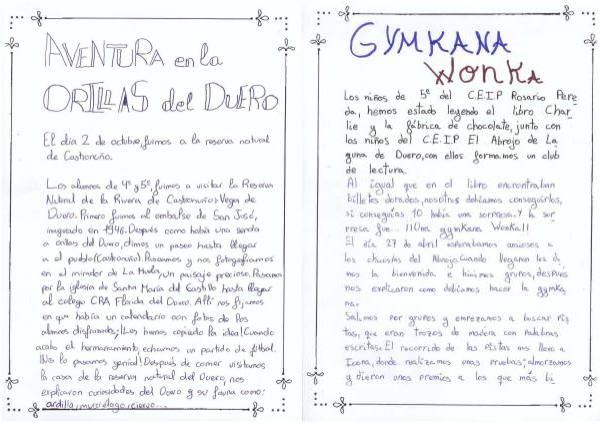 AVENTURA en la
ORILLAS del DUERO
El día 2 de octubre, fuimos a la reserva natural
de Castronuño.
Los alumnos de 4º y 5º, fuimos a visitar la Reserva
Natural de la Rivera de Castronuño Vegas de
Duero. Primero fuimos al embalse de San José,
inagurado en 1946. Después como había una senda
a orillas del Duero, dimos un paseo hasta llegar
a el pueblo (Castronuño). Paramos y nos fotografiamos
en el mirador de La Muela, un paisaje precioso. Pasamos
por la iglesia de Santa María del Castillo hasta llegar
al colegio CRA Florida del Duero. Allí nos fijamos
en que había un calendario con fotos de los
alumnos disfrazados; ¡Les hemos copiado la idea! Cuando
acabo el hermanamiento, echamos un partido de fútbol.
¡No lo pasamos genial! Después de comer visitamos
la casa de la reserva natural del Duero, nos
explicaron curiosidades del Duero y su fauna como:
ardilla, murciélago, ciervo...
GYMKANA
WONKA
Los niños de 5º del C.E.I.P Rosario Pere
da, hemos estado leyendo el libro Char
lie y la fábrica de chocolate, junto con
los niños del C.E.I.P El Abrojo de La
guna de Duero, con ellos formamos un club
de lectura.
Al igual que en el libro encontraban
billetes dorados, nosotros debíamos conseguirlos,
si conseguías 10 había una sorpresa. Y la sor
presa fue... ¡¡Una gymkana Wonka!!
El día 27 de abril esperabamos ansiosos a
los chicos/as del Abrojo. Cuando llegaron les di
mos la bienvenida e hicimos grupos, después
nos explicaron como debíamos hacer la gymka
na.
Salimos por grupos y empezamos a buscar pis
tas, que eran trozos de madera con palabras
escritas. El recorrido de las pistas nos llevo a
Icona, donde realizamos unas pruebas; almorzamos
y dieron unos premios a los que más bi